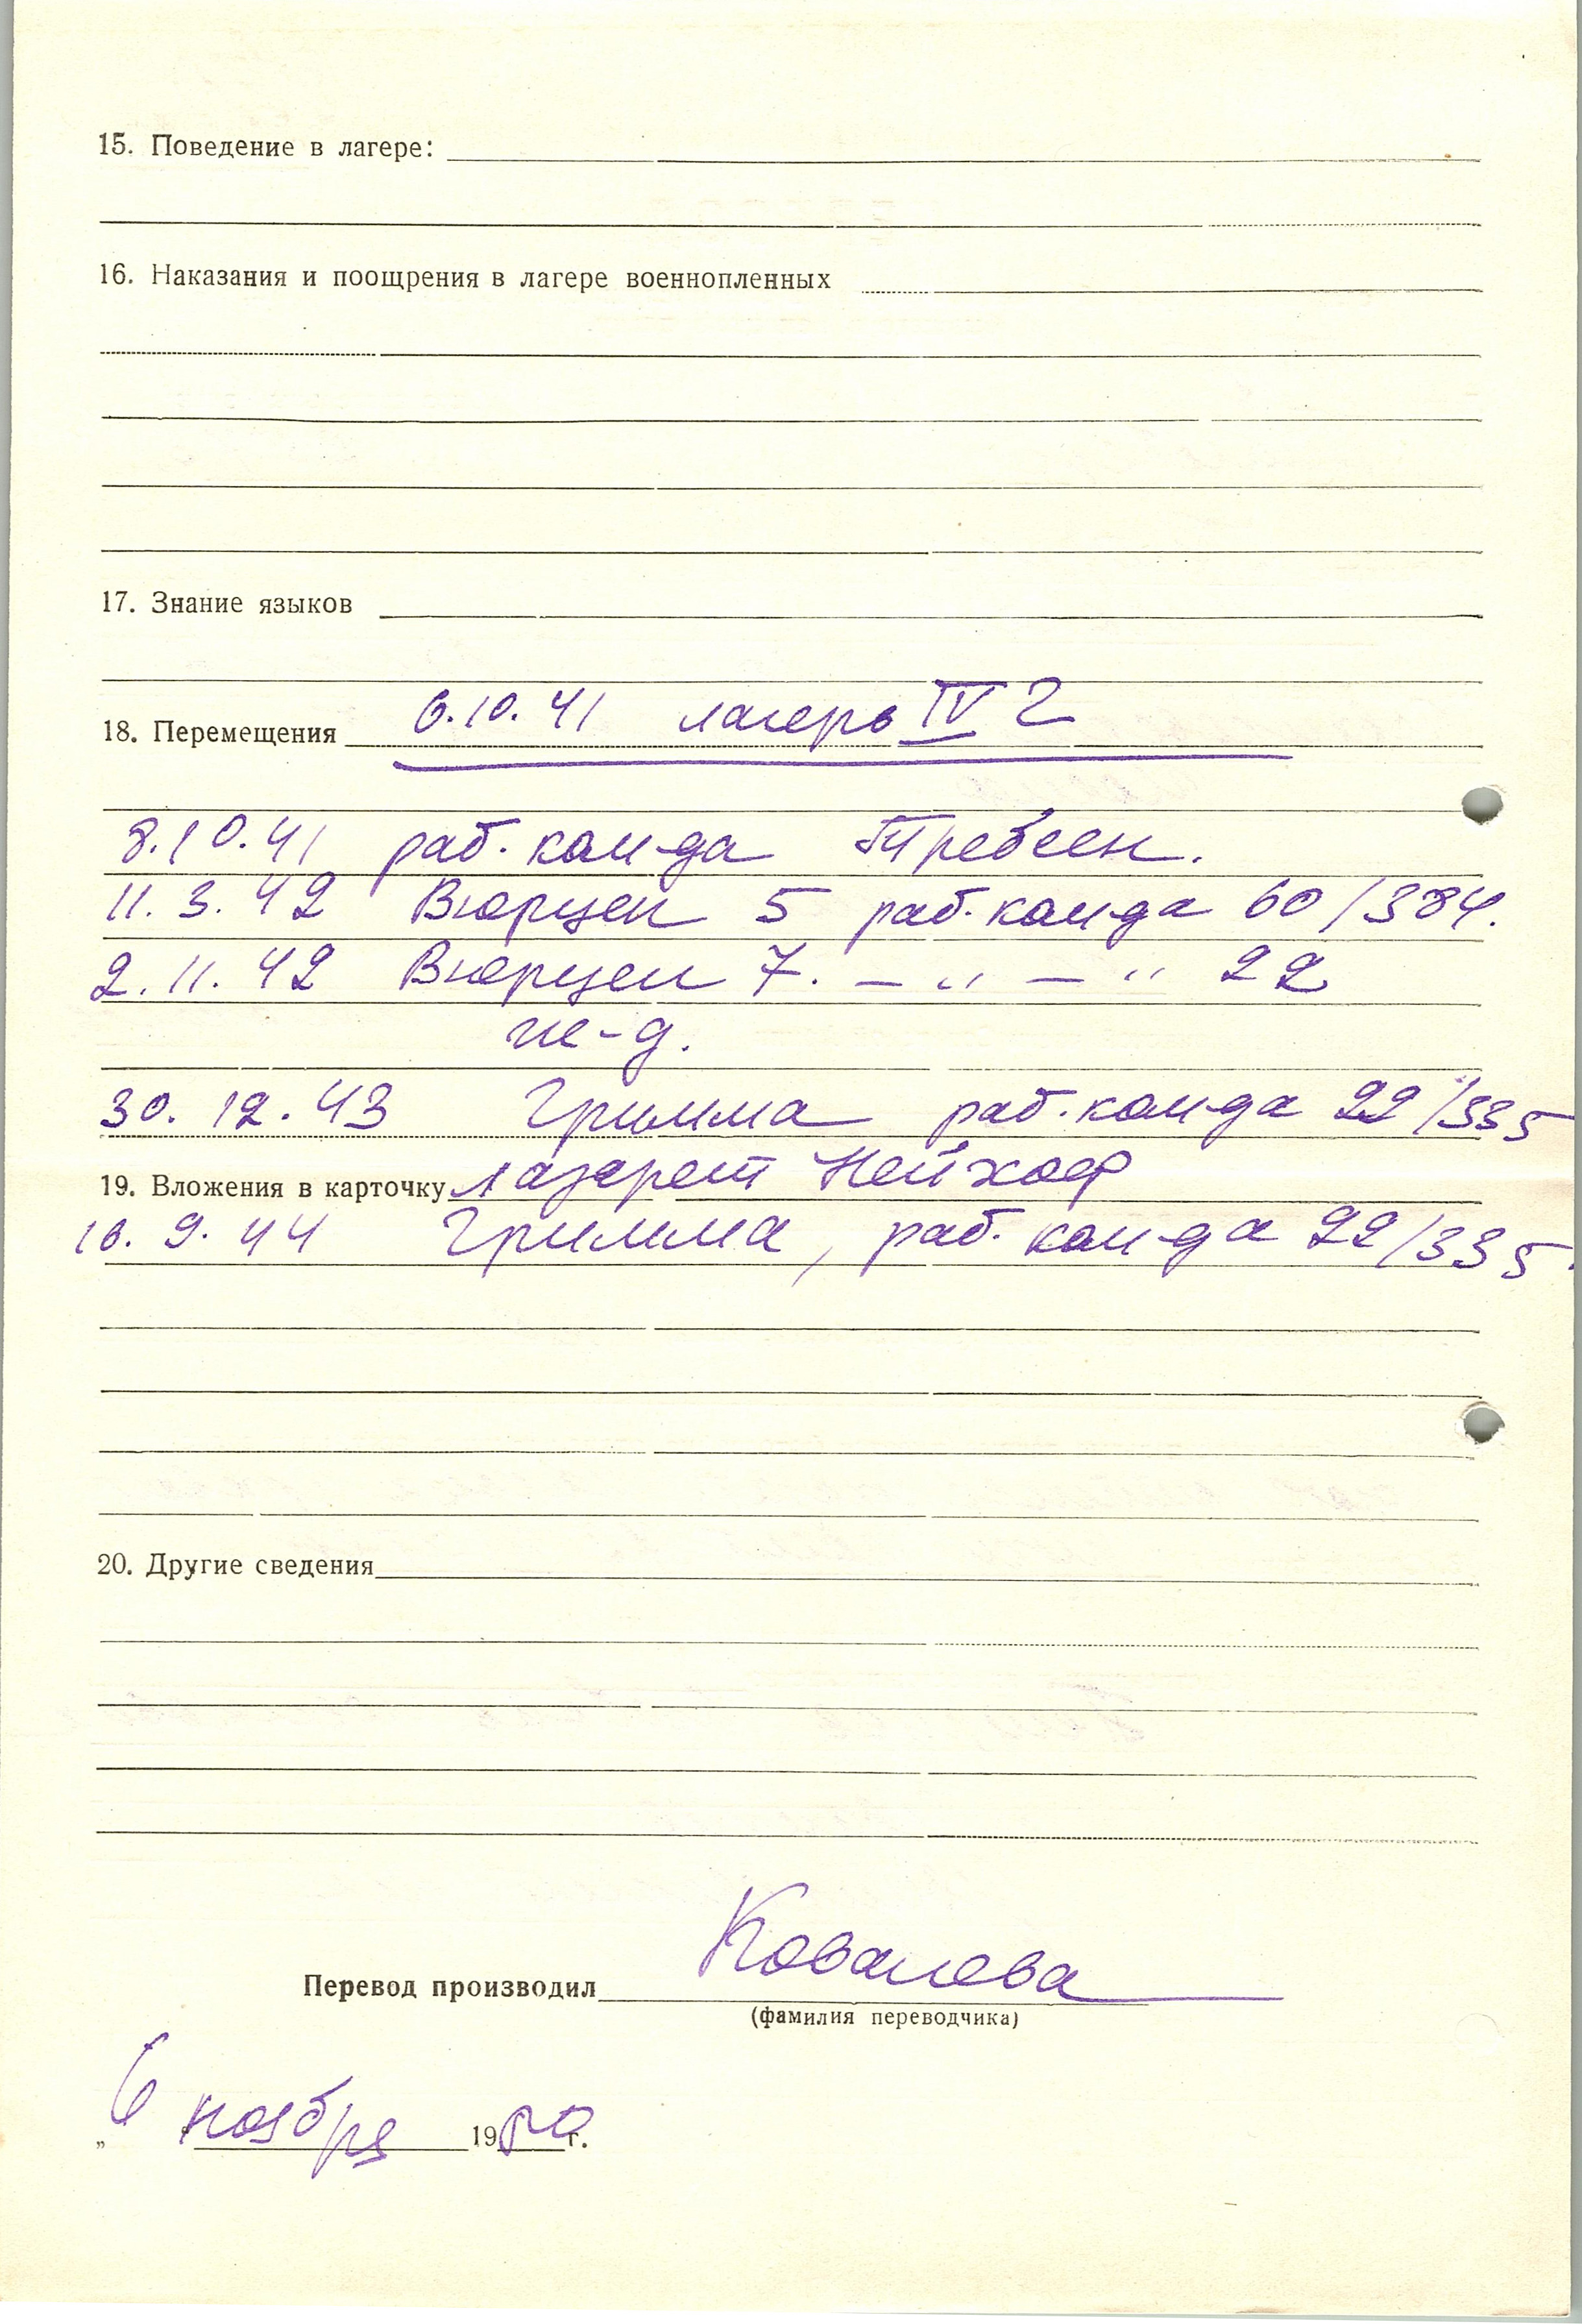 15. Поведение в лагере:
16. Наказания и поощрения в лагере военнопленных
17. Знание языков
18. Перемещения 6.10.41 лагерь IV г
8.10.41 раб. кам-да Требсен.
11.3.42 Вюрцен 5 раб. кам-да 60/384.
2.11.42 Вюрцен 7. — " — " 22
30.12.43 Гримма раб. кам-да 22/335
19. Вложения в карточку лазарет Нейхоф
16.9.44 Гримма, раб. кам-да 22/335.
20. Другие сведения
Перевод производил Ковалева
(фамилия переводчика)
„6 ноября 1980 г.